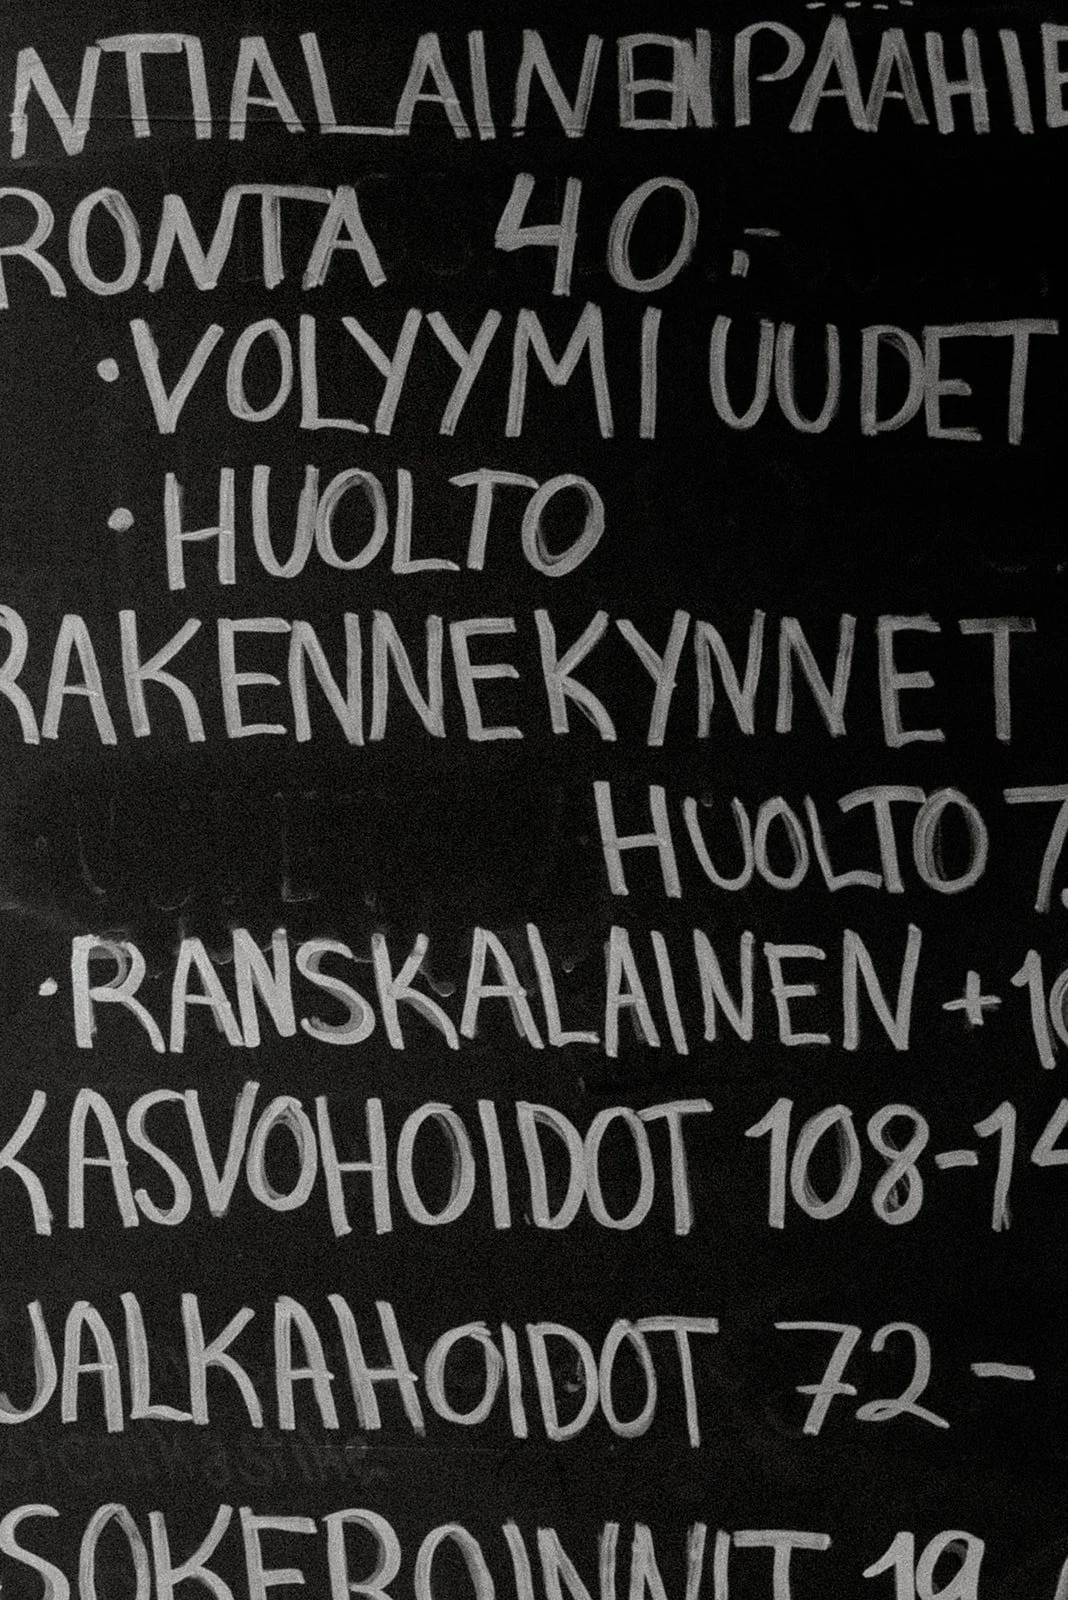 NTIALAINEN PÄÄHIE
RONTA 40.-
• VOLYYMI UUDET
• HUOLTO
RAKENNEKYNNET
HUOLTO 7
• RANSKALAINEN +10
KASVOHOIDOT 108-14
JALKAHOIDOT 72-
SOKEROINNIT 19